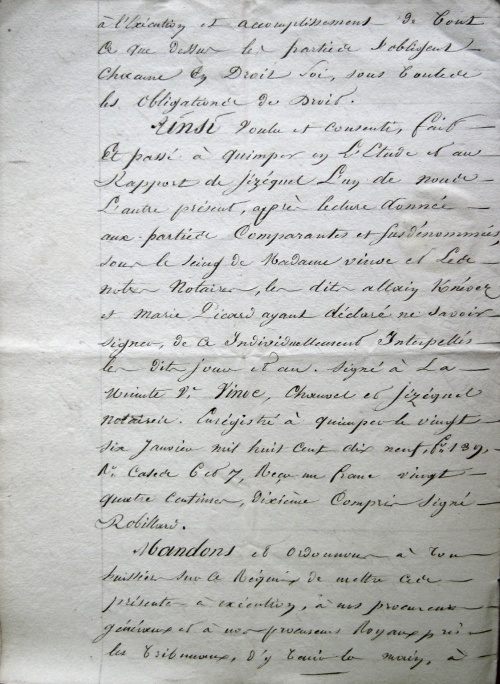 à l'Exécution et accomplissement de tout
Ce que dessus les parties s'obligent
Chacune En Droit Soi, sous toutes
les obligations de Droit.
Ainsi Voulu et consenti, fait
Et passé à quimper en l'Etude et au
Rapport de Jézéquel L'un de nous
L'autre présent, après lecture donnée
aux parties Comparantes et susdénommées,
sous le seing de Madame veuve et Les
notres Notaires, les dits allain Knévez
et marie Picard ayant déclaré ne Savoir
signer, de ce Individuellement Interpellés
les dits jour et an. Signé à La
Minute Vve Vinoc, Chauvel et Jézéquel
notaires. Enrégistré à quimper le vingt
six Janvier mil huit cent dix neuf, fo 139,
Ro Cases 6 et 7, Reçu un franc vingt
quatre Centimes, dixième Compris signé
Robillard.
Mandons et ordonnons à tous
huissiers sur ce Réquis de mettre ces
présentes à exécution, à nos procureurs
généraux et à nos procureurs Royaux près
les tribunaux, d'y tenir la main, à